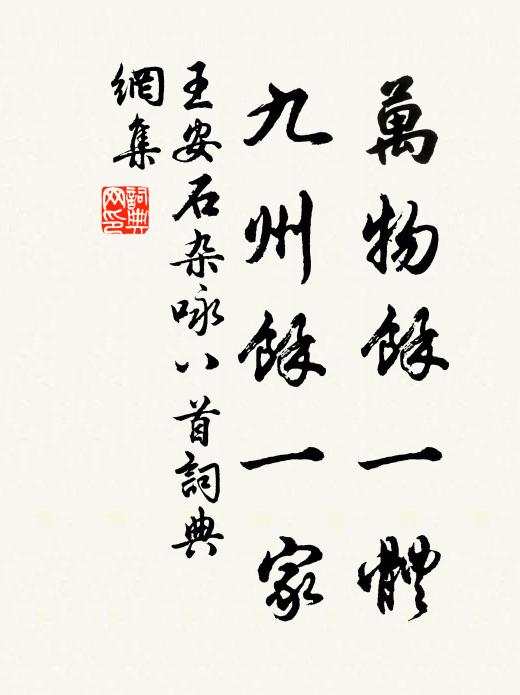 萬物餘一體
九州餘一家
王安石杂咏八首詞典
網集
詞典
网印